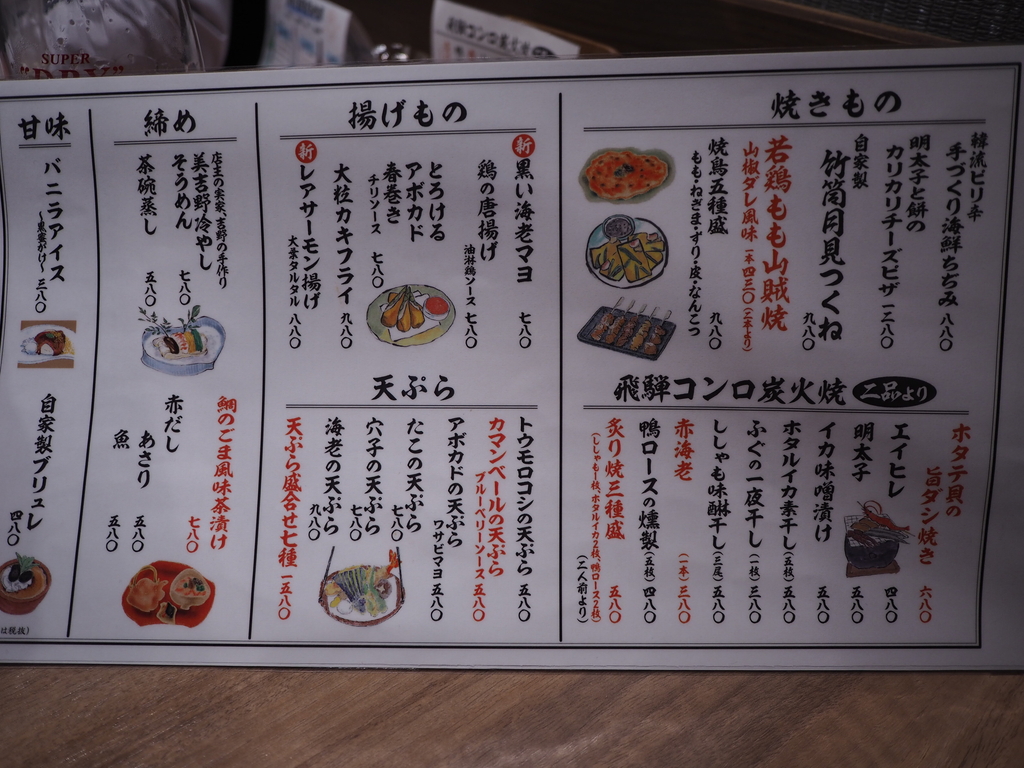 SUPER
"DRY"
焼きもの
韓流ピリ辛
手づくり海鮮ちぢみ 八八〇
明太子と餅の
カリカリチーズピザ 一二八〇
自家製
竹筒月見つくね 九八〇
若鶏もも山賊焼
山椒ダレ風味 一本四三〇(二本より)
焼鳥五種盛 九八〇
もも・ねぎま・ずり・皮・なんこつ
飛騨コンロ炭火焼 二品より
ホタテ貝の
旨ダシ焼き 六八〇
エイヒレ 四八〇
明太子 五八〇
イカ味噌漬け 五八〇
ホタルイカ素干し(五枚) 五八〇
ふぐの一夜干し(一枚) 三八〇
ししゃも味醂干し(三尾) 五八〇
赤海老 (一本) 三八〇
鴨ロースの燻製(五枚) 四八〇
炙り焼三種盛 五八〇
(ししゃも1枚、ホタルイカ2枚、鴨ロース2枚)
(二人前より)
揚げもの
新 黒い海老マヨ 七八〇
鶏の唐揚げ
油淋鶏ソース 七八〇
とろける
アボカド
春巻き
チリソース 七八〇
大粒カキフライ 九八〇
新 レアサーモン揚げ
大葉タルタル 八八〇
天ぷら
トウモロコシの天ぷら 五八〇
カマンベールの天ぷら
ブルーベリーソース 五八〇
アボカドの天ぷら
ワサビマヨ 五八〇
たこの天ぷら 七八〇
穴子の天ぷら 七八〇
海老の天ぷら 九八〇
天ぷら盛合せ七種 一五八〇
締め
店主の実家、吉野の手作り
美吉野冷やし
そうめん 七八〇
茶碗蒸し 五八〇
鯛のごま風味茶漬け 七八〇
赤だし
あさり 五八〇
魚 五八〇
甘味
バニラアイス
〜黒蜜がけ〜 三八〇
自家製ブリュレ 四八〇
は税抜)